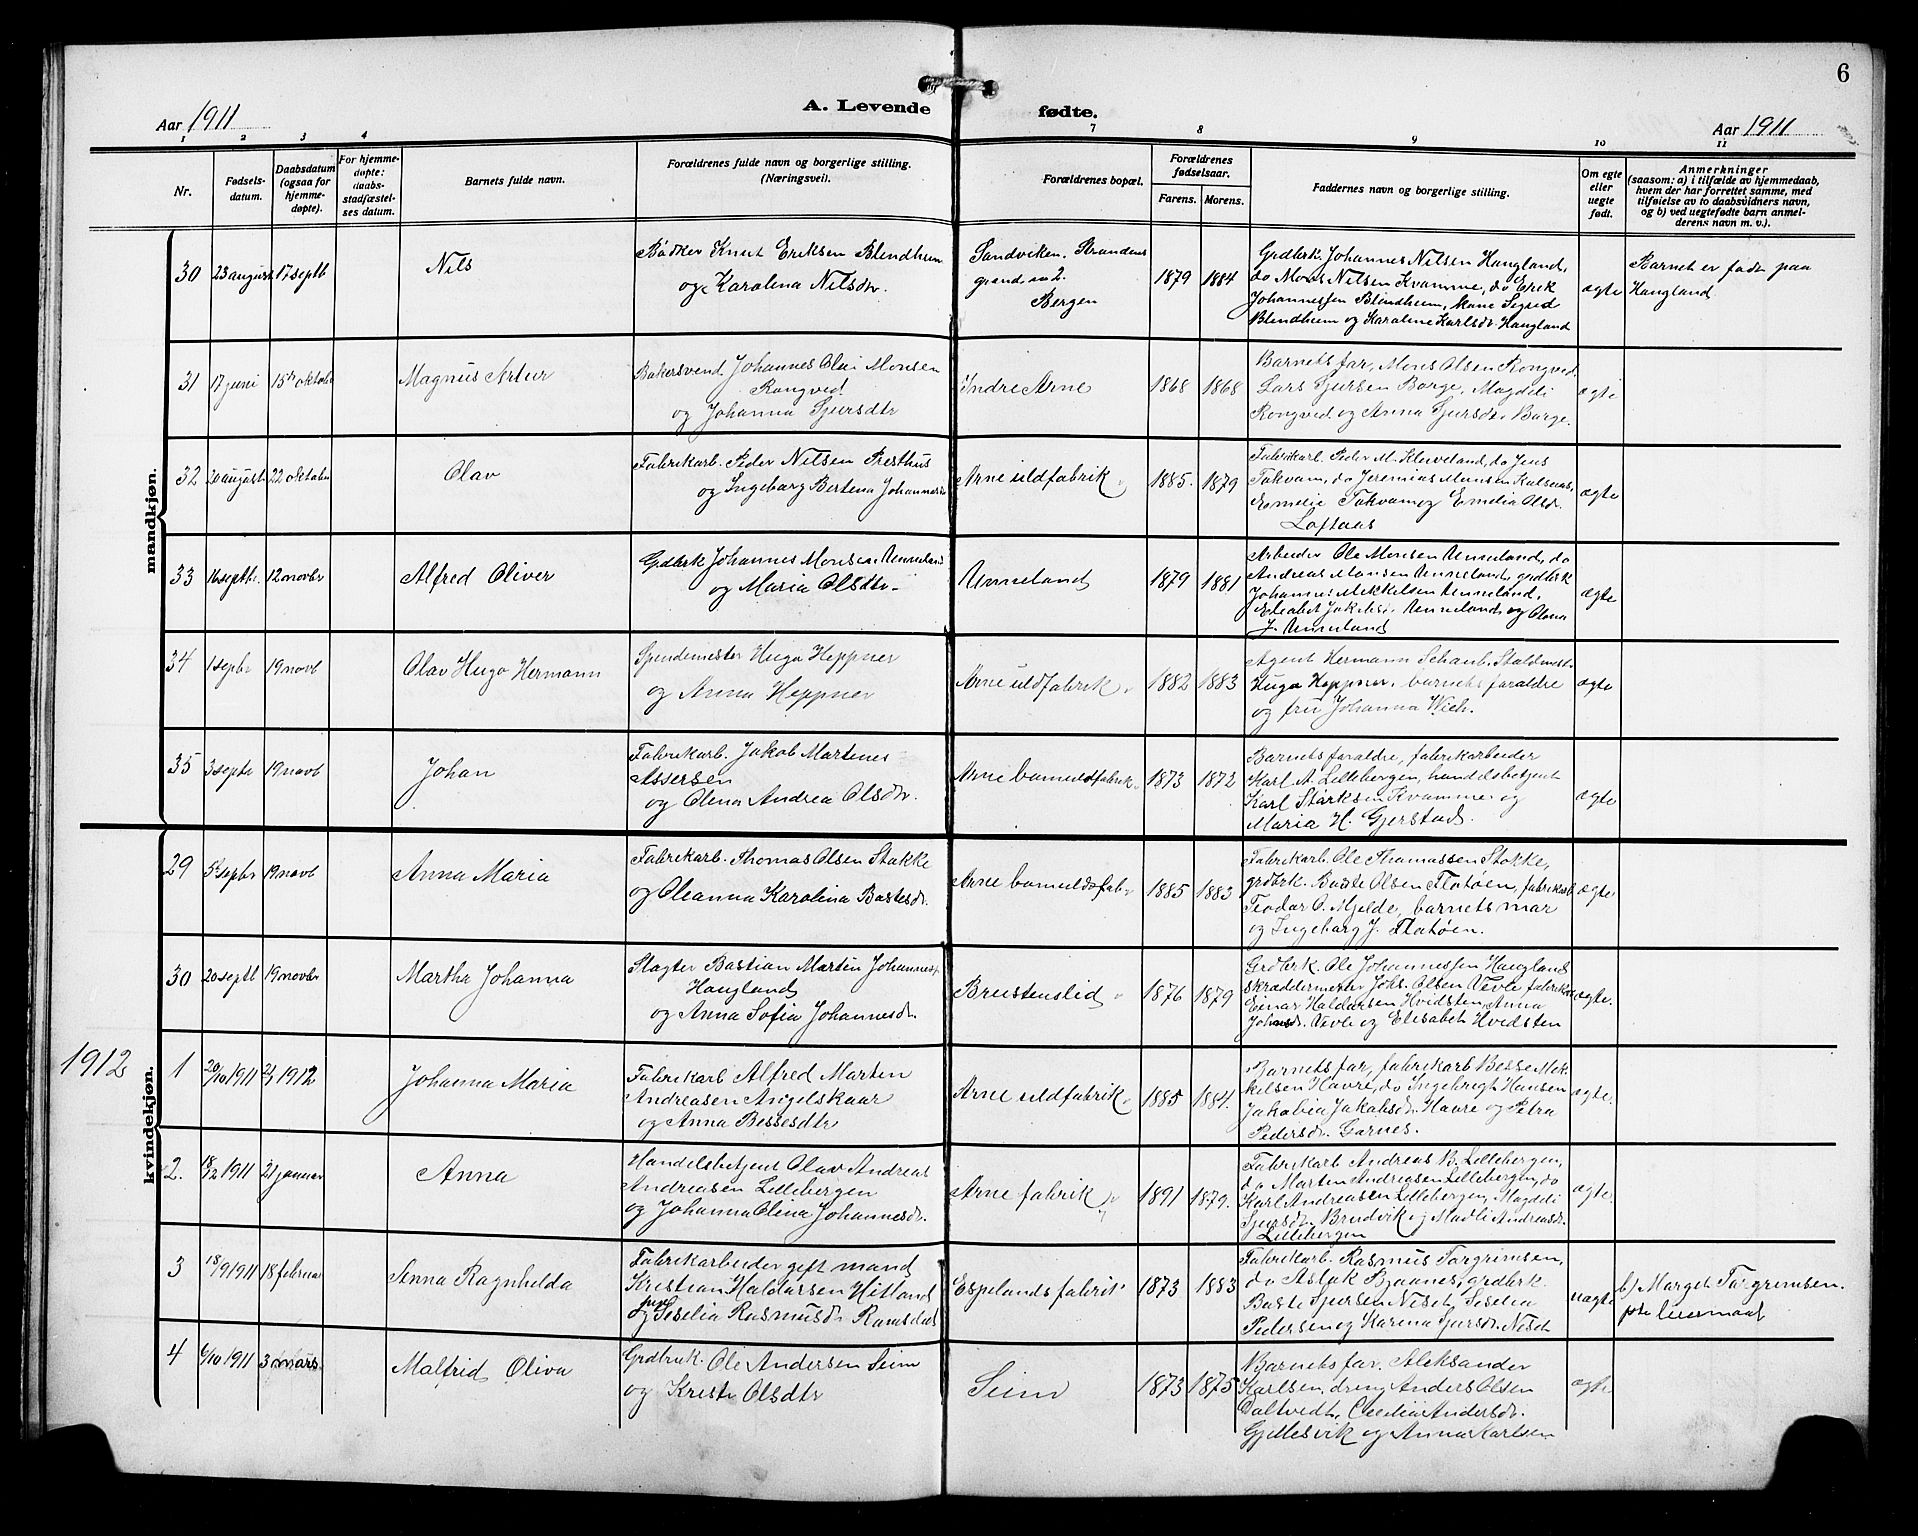 6
A. Levende fødte.
Aar 1911
Aar 1911
1 2 3 4 7 8 9 10 11
Nr.
Fødsels-
datum.
Daabsdatum
(ogsaa for
hjemme-
døpte).
For hjemme-
døpte:
daabs-
stadfæstel-
ses datum.
Barnets fulde navn.
Forældrenes fulde navn og borgerlige stilling.
(Næringsvei).
Forældrenes bopæl.
Forældrenes
fødselsaar.
Farens. Morens.
Faddernes navn og borgerlige stilling.
Om egte
eller
uegte
født.
Anmerkninger
(saasom: a) i tilfælde av hjemmedaab,
hvem der har forrettet samme, med
tilføielse av to daabsvidners navn,
og b) ved uegtefødte barn anmel-
derens navn m. v.).
mandkjøn.
30 23 august 17 septb Nils
Bødker Knut Eriksen Blindheim
og Karolina Nilsdtr.
Sandviken. Strandens
grend no 2.
Bergen
1879 1884
Grdbrk. Johannes Nilsen Haugland,
do Mons Nilsen Kvamme, do Erik
Johannessen Blindheim, kone Sigrid
Blendheim og Karoline Karlsdr. Haugland
ægte
Barnet er født paa
Haugland
31 17 juni 15de oktober Magnus Artur
Bakersvend Johannes Olai Monsen
Rongved
og Johanna Sjursdtr
Indre Arne
1868 1868
Barnets far, Mons Olsen Rongved.
Lars Sjursen Borge, Magdeli
Rongved og Anna Sjursdr. Borge.
ægte
32 20 august 22 oktober Olav
Fabrikarb. Peder Nilsen Presthus
og Ingeborg Bertena Johannesdr
Arne uldfabrik
1885. 1879
Fabrikarb. Peder M. Kleiveland, do Jens
Takvam, do Jeremias Monsen Kalsaas,
Emelie Takvam og Emelia Olsdr.
Loftaas
ægte
33 16 septbr. 12 novbr Alfred Oliver
Grdbrk Johannes Monsen Unneland
og Maria Olsdtr.
Unneland
1879 1881
Arbeider Ole Monsen Unneland, do
Andreas Monsen Unneland, grdbrk
Johannes Mikkelsen Unneland,
Elisabet Jakobsdr. Unneland og Olina
J. Unneland
ægte
34 1 septbr 19 novb Olav Hugo Hermann
Spindemester Hugo Heppner
og Anna Heppner
Arne uldfabrik
1882 1883
Agent Hermann Schaub,
Hugo Heppner, barnets foraldre
og fru Johanna Wich.
ægte
35 3 septr 19 novb Johan
Fabrikarb. Jakob Martenes
Assersen
og Olena Andrea Olsdtr.
Arne bomuldfabrik
1873 1872
Barnets foraldre, fabrikarbeider
Karl A. Lillebergen, handelsbetjent
Karl Størksen Kvamme og
Maria H. Gjerstad.
ægte
kvindekjøn.
29 5te septbr 19 novb Anna Maria
Fabrikarb. Thomas Olsen Stokke
og Oleanna Karolina Bastesdr.
Arne bomuldsfab.
1885 1883
Fabrikarb. Ole Thomassen Stokke,
grdbrk. Baste Olsen Flatøen, fabrikarb
Teodor O. Mjelde, barnets mor
og Ingeborg J. Flatøen.
ægte
30 20 septb 19 novbr Martha Johanna
Slagter Bastian Martin Johannesen
Haugland
og Anna Sofia Johannesdr.
Brustenslid
1876 1879
Grdbrk Ole Johannessen Haugland
skræddermester Johs. Olsen Vevle fabrikarb
Einar Haldorsen Hvidsten, Anna
Johnsdr. Vevle og Elisabeth Hvedsten
ægte.
1912
1 20/10 1911 2/1 1912 Johanna Maria
Fabrikarb Alfred Marten
Andreasen Angelskaar
og Anna Bessesdtr
Arne uldfabrik
1885 1884.
Barnets far, fabrikarb Besse Mik-
kelsen Havre, do Ingebrigt Hansen
Jakobia Jakobsdr. Havre og Petra
Pedersdr. Garnes.
ægte.
2. 18/12 1911 21 januar Anna
Handelsbetjent Olav Andreas
Andreasen Lillebergen
og Johanna Olina Johannesdr.
Arne fabrik
1891 1879.
Fabrikarb Andreas B. Lillebergen,
do Martin Andreasen Lillebergen, do
Karl Andreasen Lillebergen, Magdeli
Sjursdr. Brudvik og Madli Andreasdr.
Lillebergen
ægte
3 18/9 1911 18 februar Senna Ragnhelda
Fabrikarbeider gift mand
Kristian Haldorsen Hitland
og pige Seselia Rasmusdr Ramsdal
Espelands fabrik
1873 1883
Fabrikarb. Rasmus Torgrimsen,
do Aslak Bjaanes, grdbrk.
Baste Sjursen Nisch, Seselia
Pedersen og Karina Sjursdr. Nisch
uægte
b) Marget Torgrimsen.
4 6/10 1911 3 mars Malfrid Oliva
Grdbruk. Ole Andersen Seim
og Kristi Olsdtr
Seim
1873 1875
Barnets far, Aleksander
Karlsen, dreng Anders Olsen
Daltvedt, Cecilia Andersdr.
Gjellesvik og Anna Karlsen
ægte